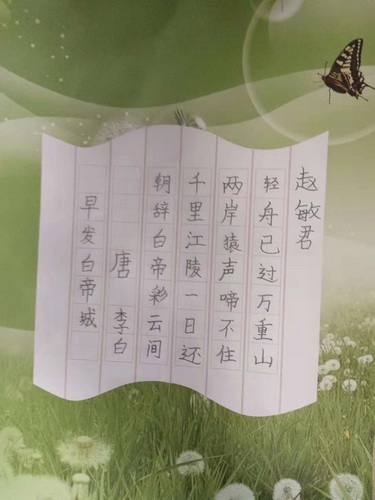 早发白帝城
唐 李白
朝辞白帝彩云间
千里江陵一日还
两岸猿声啼不住
轻舟已过万重山
赵敏君